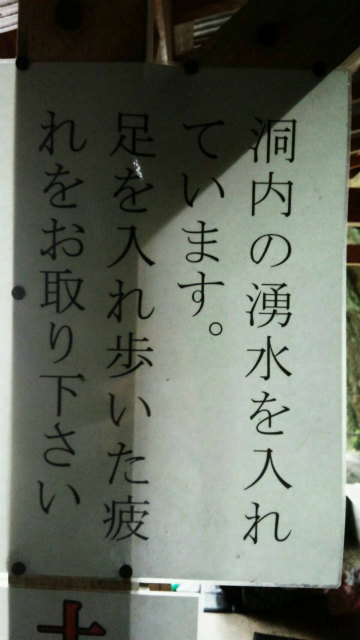 洞内の湧水を入れ
ています。
足を入れ歩いた疲
れをお取り下さい